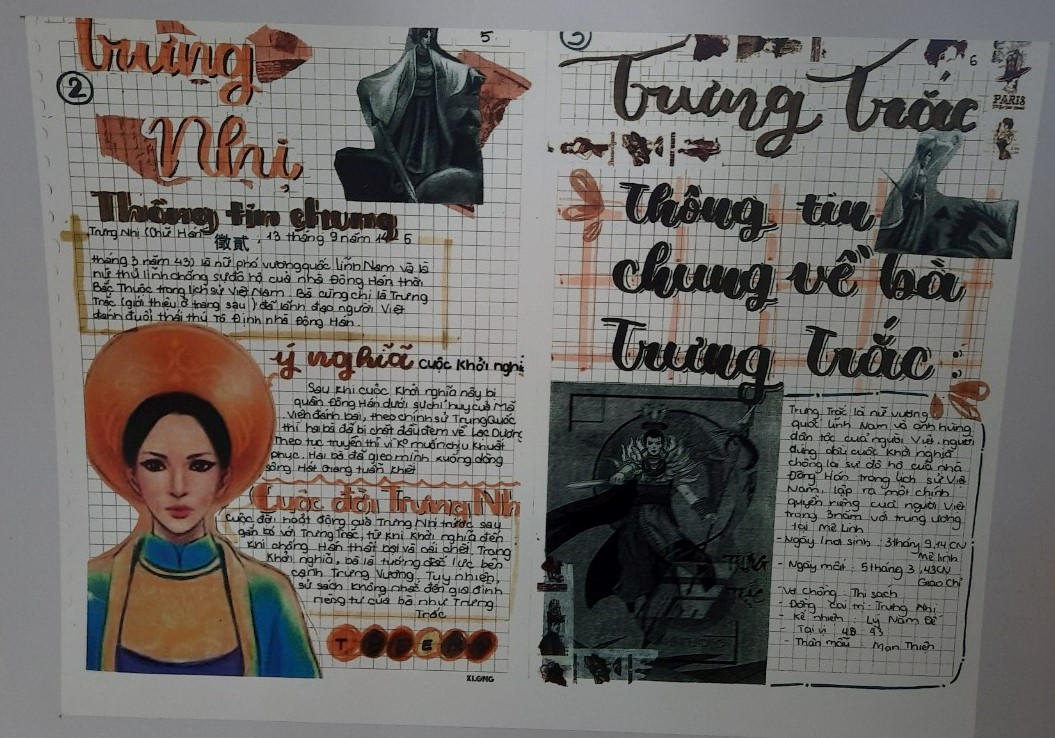 5
2
Trưng
Nhị
Thông tin chung
Trưng Nhị (chữ Hán 徵貳, 13 tháng 9 năm 14 - 5
tháng 3 năm 43) là nữ phó vương quốc Lĩnh Nam và là
nữ thủ lĩnh chống sự đô hộ của nhà Đông Hán thời
Bắc Thuộc trong lịch sử Việt Nam. Bà cũng chị là Trưng
Trắc (giới thiệu ở trang sau) đã lãnh đạo người Việt
đánh đuổi thái thú Tô Định nhà Đông Hán.
ý nghĩa cuộc khởi nghĩ
Sau khi cuộc khởi nghĩa này bị
quân Đông Hán dưới sự chỉ huy của Mã
Viện đánh bại, theo chính sử Trung Quốc
thì hai bà đã bị chặt đầu đem về Lạc Dương
Theo tục truyền thì vì ko muốn chịu khuất
phục. Hai bà đã gieo mình xuống dòng
sông Hát Giang tuẫn khiết
Cuộc đời Trưng Nh
Cuộc đời hoạt động của Trưng Nhị trước sau
gắn bó với Trưng Trắc, từ khi khởi nghĩa đến
khi chống Hán thất bại và cái chết. Trong
khởi nghĩa, bà là tướng đắc lực bên
cạnh Trưng Vương. Tuy nhiên,
sử sách không nhắc đến gia đình
riêng tư của bà như Trưng
Trắc
XLONG
3
6
PARIS
Trưng Trắc
Thông tin
chung về bà
Trưng Trắc
Trưng Trắc là nữ vương
quốc Lĩnh Nam và anh hùng
dân tộc của người Việt, người
đứng đầu cuộc khởi nghĩa
chống lại sự đô hộ của nhà
Đông Hán trong lịch sử Việt
Nam, lập ra một chính
quyền riêng của người Việt
trong 3 năm với trung ương
tại Mê Linh
- Ngày inơi sinh : 3 tháng 9, 14 CN
Mê Linh
- Ngày mất : 5 tháng 3, 43CN
Giao Chỉ
Vợ chồng : Thi Sách
- Đồng cai trị : Trưng Nhị
- Kế nhiệm : Lý Nam Đế
- Tại vị 40 43
- Thân mẫu Man Thiện
TRƯNG
TRẮC